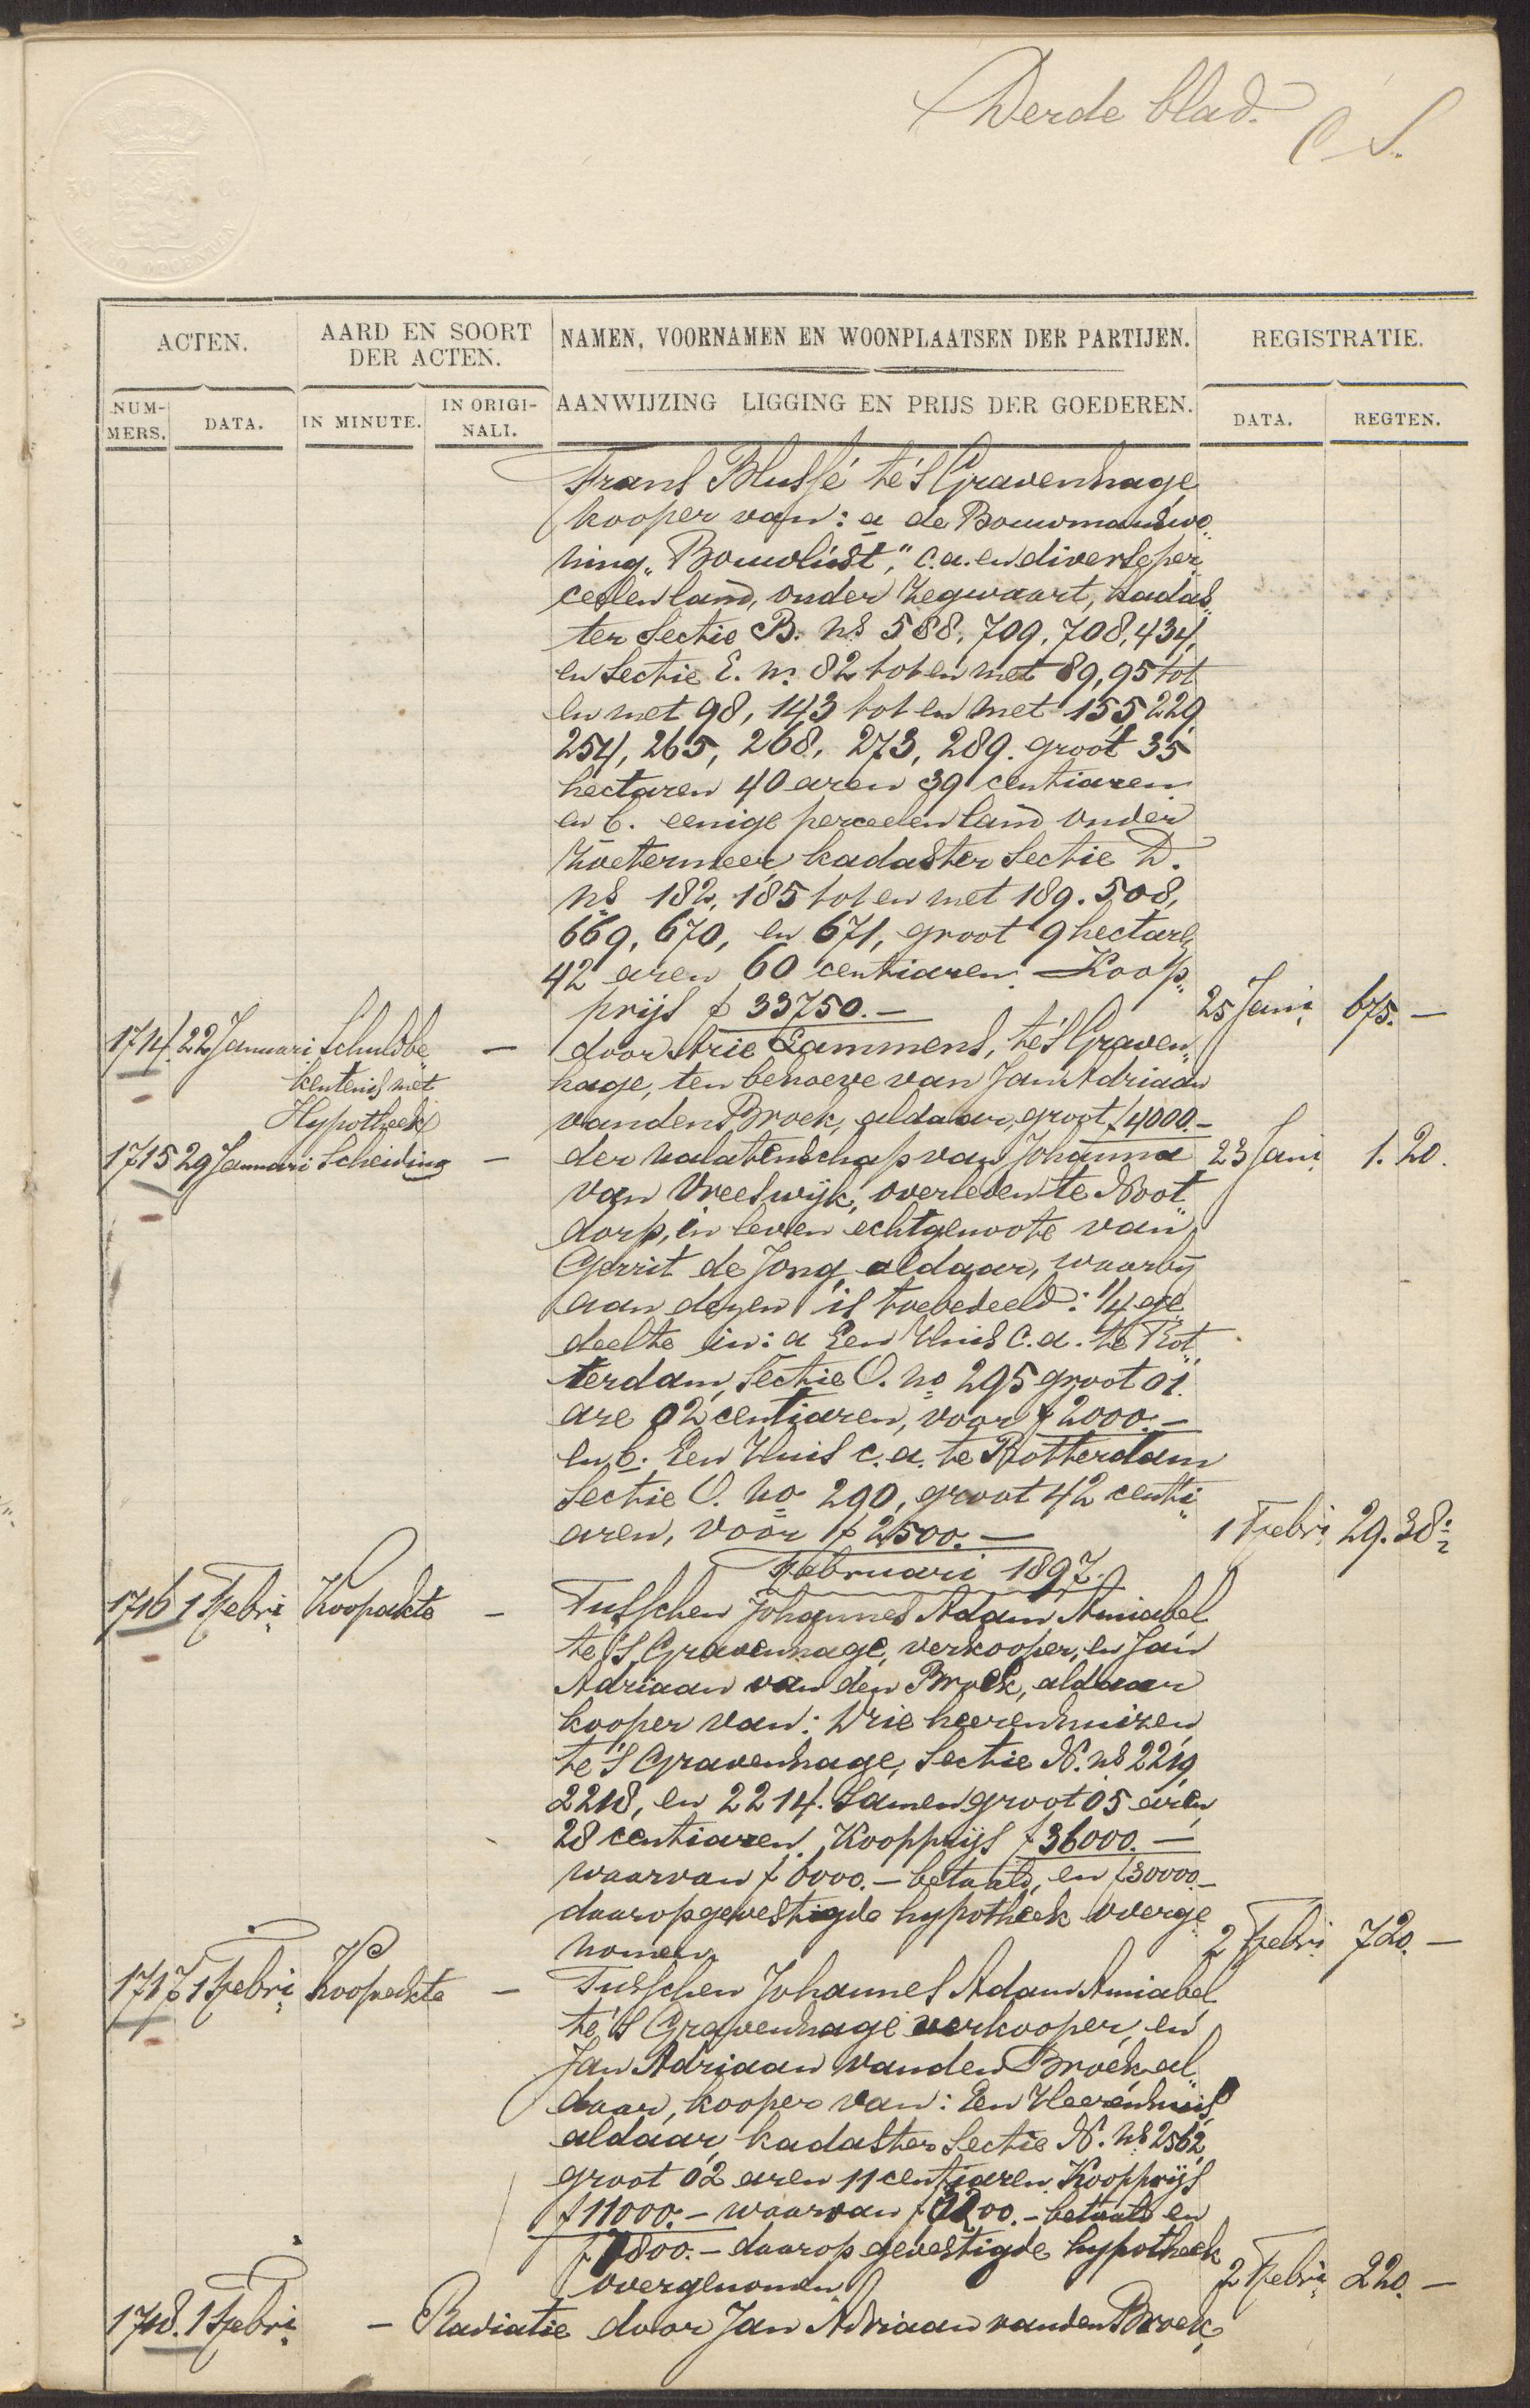 Derde blad.
ACTEN.
AARD EN SOORT DER ACTEN.
NAMEN, VOORNAMEN EN WOONPLAATSEN DER PARTIJEN.
REGISTRATIE.
NUMMERS.
DATA.
IN MINUTE.
IN ORIGINALI.
AANWIJZING LIGGING EN PRIJS DER GOEDEREN.
DATA.
REGTEN.
Frans Blussé te 's Gravenhage
kooper van: a de Bouwmanswo„
ning „Bouwlust," c.a. en diverse per„
ceelen land, onder Zegwaart, kadas„
ter Sectie B. ns 588, 709, 708, 434,
en Sectie E. ns 82 tot en met 89, 95 tot
en met 98, 143 tot en met 155, 229,
254, 265, 268, 273, 289. groot 35
hectaren 40 aren 39 centiaren
en b. eenige perceelen land onder
Zoetermeer, kadaster Sectie D.
ns 182, 185 tot en met 189. 508,
669, 670, en 671, groot 9 hectaren
42 aren 60 centiaren. Koop„
prijs f 33750.— 25 Jani 675.—
1714. 22 Januari Schuldbe„ — door Arie Lammens, te 's Graven„
kentenis met hage, ten behoeve van Jan Adriaan
Hypotheek van den Broek, aldaar, groot f 4000.— 23 Jani 1.20.
1715 29 Januari Scheiding — der nalatenschap van Johanna
van Vreeswijk, overleden te Noot„
dorp, in leven echtgenoote van
Gerrit de Jong aldaar, waarbij
aan dezen is toebedeeld: 1/4 ge„
deelte in: a Een Huis c.a. te Rot„
terdam, Sectie O. no 295 groot 01
are 02 centiaren, voor f 2000.—
en b. Een Huis c.a. te Rotterdam
Sectie O. no 290, groot 42 centi„
aren, voor f 2500.— 1 Febri 29.38
Februari 1897.
1716 1 Febri Koopakte — Tusschen Johannes Adam Amiabel
te 's Gravenhage, verkooper, en Jan
Adriaan van den Broek, aldaar
kooper van: Drie heerenhuizen
te 's Gravenhage, Sectie N. ns 2219,
2218, en 2214. Samen groot 05 aren
28 centiaren. Koopprijs f 36000.—
waarvan f 6000.— betaald, en f 30000.—
daarop gevestigde hypotheek overge„
nomen. 2 Febri 720.—
1717 1 Febri Koopakte — Tusschen Johannes Adam Amiabel
te 's Gravenhage verkooper, en
Jan Adriaan van den Broek al„
daar, kooper van: Een Heerenhuis
aldaar, kadaster Sectie N. ns 2562
groot 02 aren 11 centiaren. Koopprijs
f 11000.— waarvan betaald en
f 7800.— daarop gevestigde hypotheek
overgenomen. 2 Febri 220.—
1718. 1 Febri — Radiatie door Jan Adriaan van den Broek,